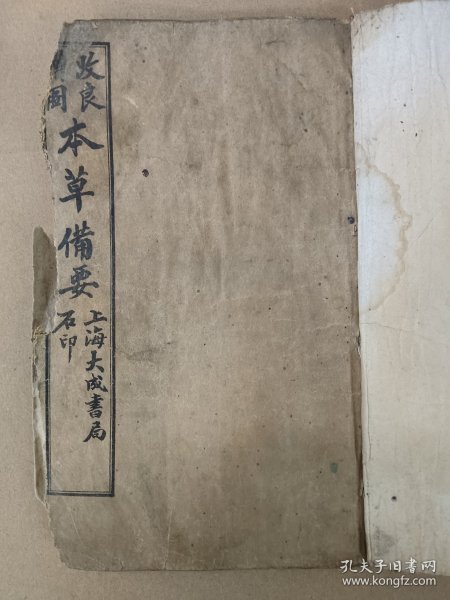 改良
圖
本草備要
上海大成書局
石印
孔夫子旧书网
www.kongfz.com